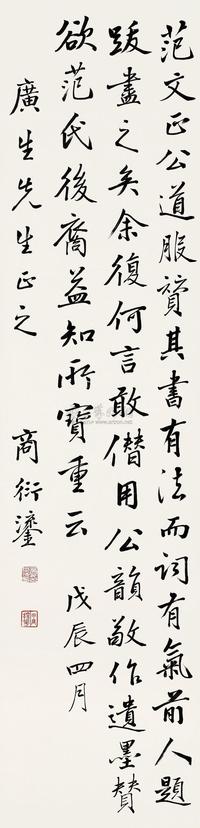 范文正公道服贊其書有法而詞有氣前人題
跋盡之矣余復何言敢僭用公韻敬作遺墨贊
欲范氏後裔益知所寶重云 戊辰四月
廣生先生正之 商衍鎏